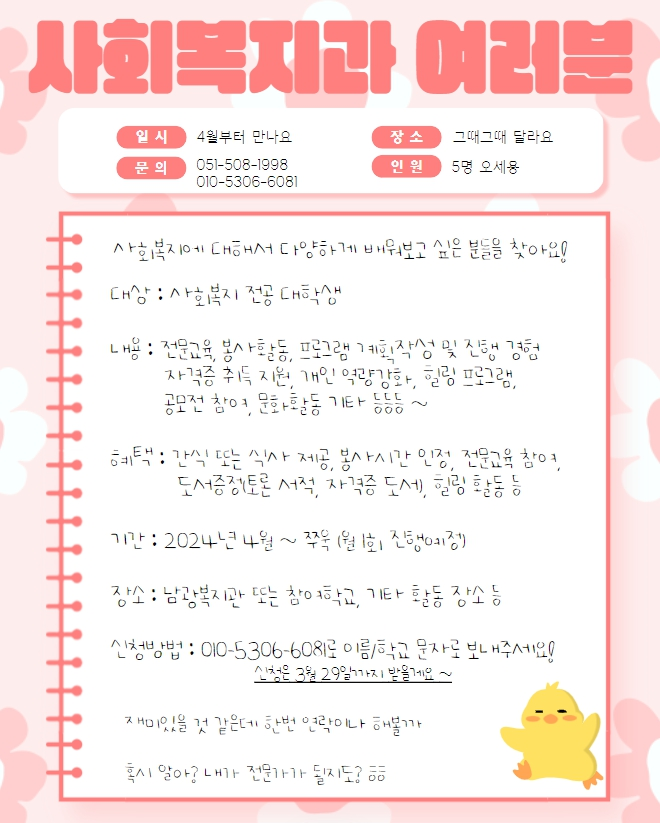 사회복지관 여러분
일 시 4월부터 만나요
장 소 그때그때 달라요
문 의 051-508-1998
010-5306-6081
인 원 5명 오세용
사회복지에 대해서 다양하게 배워보고 싶은 분들을 찾아요!
대상 : 사회복지 전공 대학생
내용 : 전문교육, 봉사활동, 프로그램 계획작성 및 진행 경험
자격증 취득 지원, 개인 역량강화, 힐링 프로그램,
공모전 참여, 문화활동 기타 등등등 ~
혜택 : 간식 또는 식사 제공, 봉사시간 인정, 전문교육 참여,
도서증정(토론 서적, 자격증 도서), 힐링 활동 등
기간 : 2024년 4월 ~ 쭈욱 (월 1회 진행예정)
장소 : 남광복지관 또는 참여학교, 기타 활동 장소 등
신청방법 : 010-5306-6081로 이름/학교 문자로 보내주세요!
신청은 3월 29일까지 받을게요 ~
재미있을 것 같은데 한번 연락이나 해볼까
혹시 알아? 내가 전문가가 될지도? ㅎㅎ